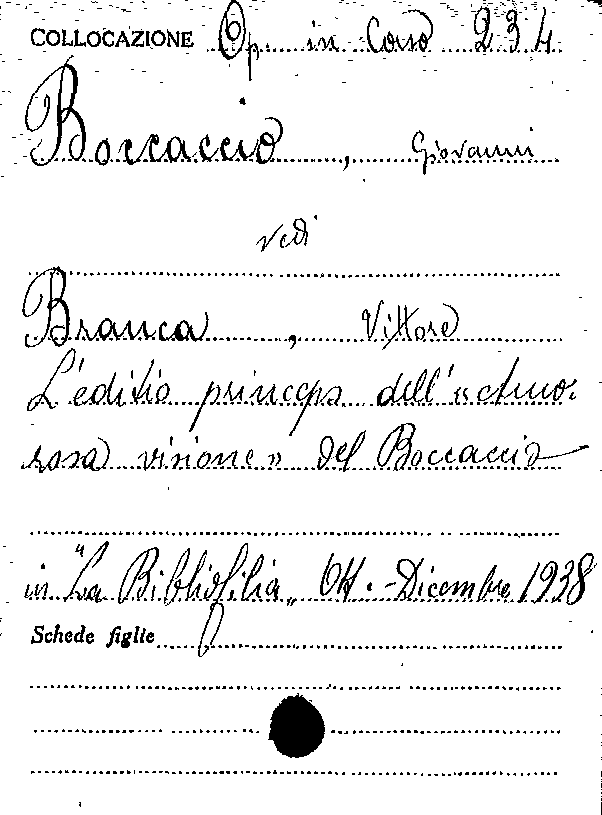 COLLOCAZIONE Op. in Corso 234
Boccaccio, Giovanni
vedi
Branca, Vittore
L'editio princeps dell'«Amo-
rosa visione» del Boccaccio
in "La Bibliofilia„ Ott.-Dicembre 1938
Schede figlie